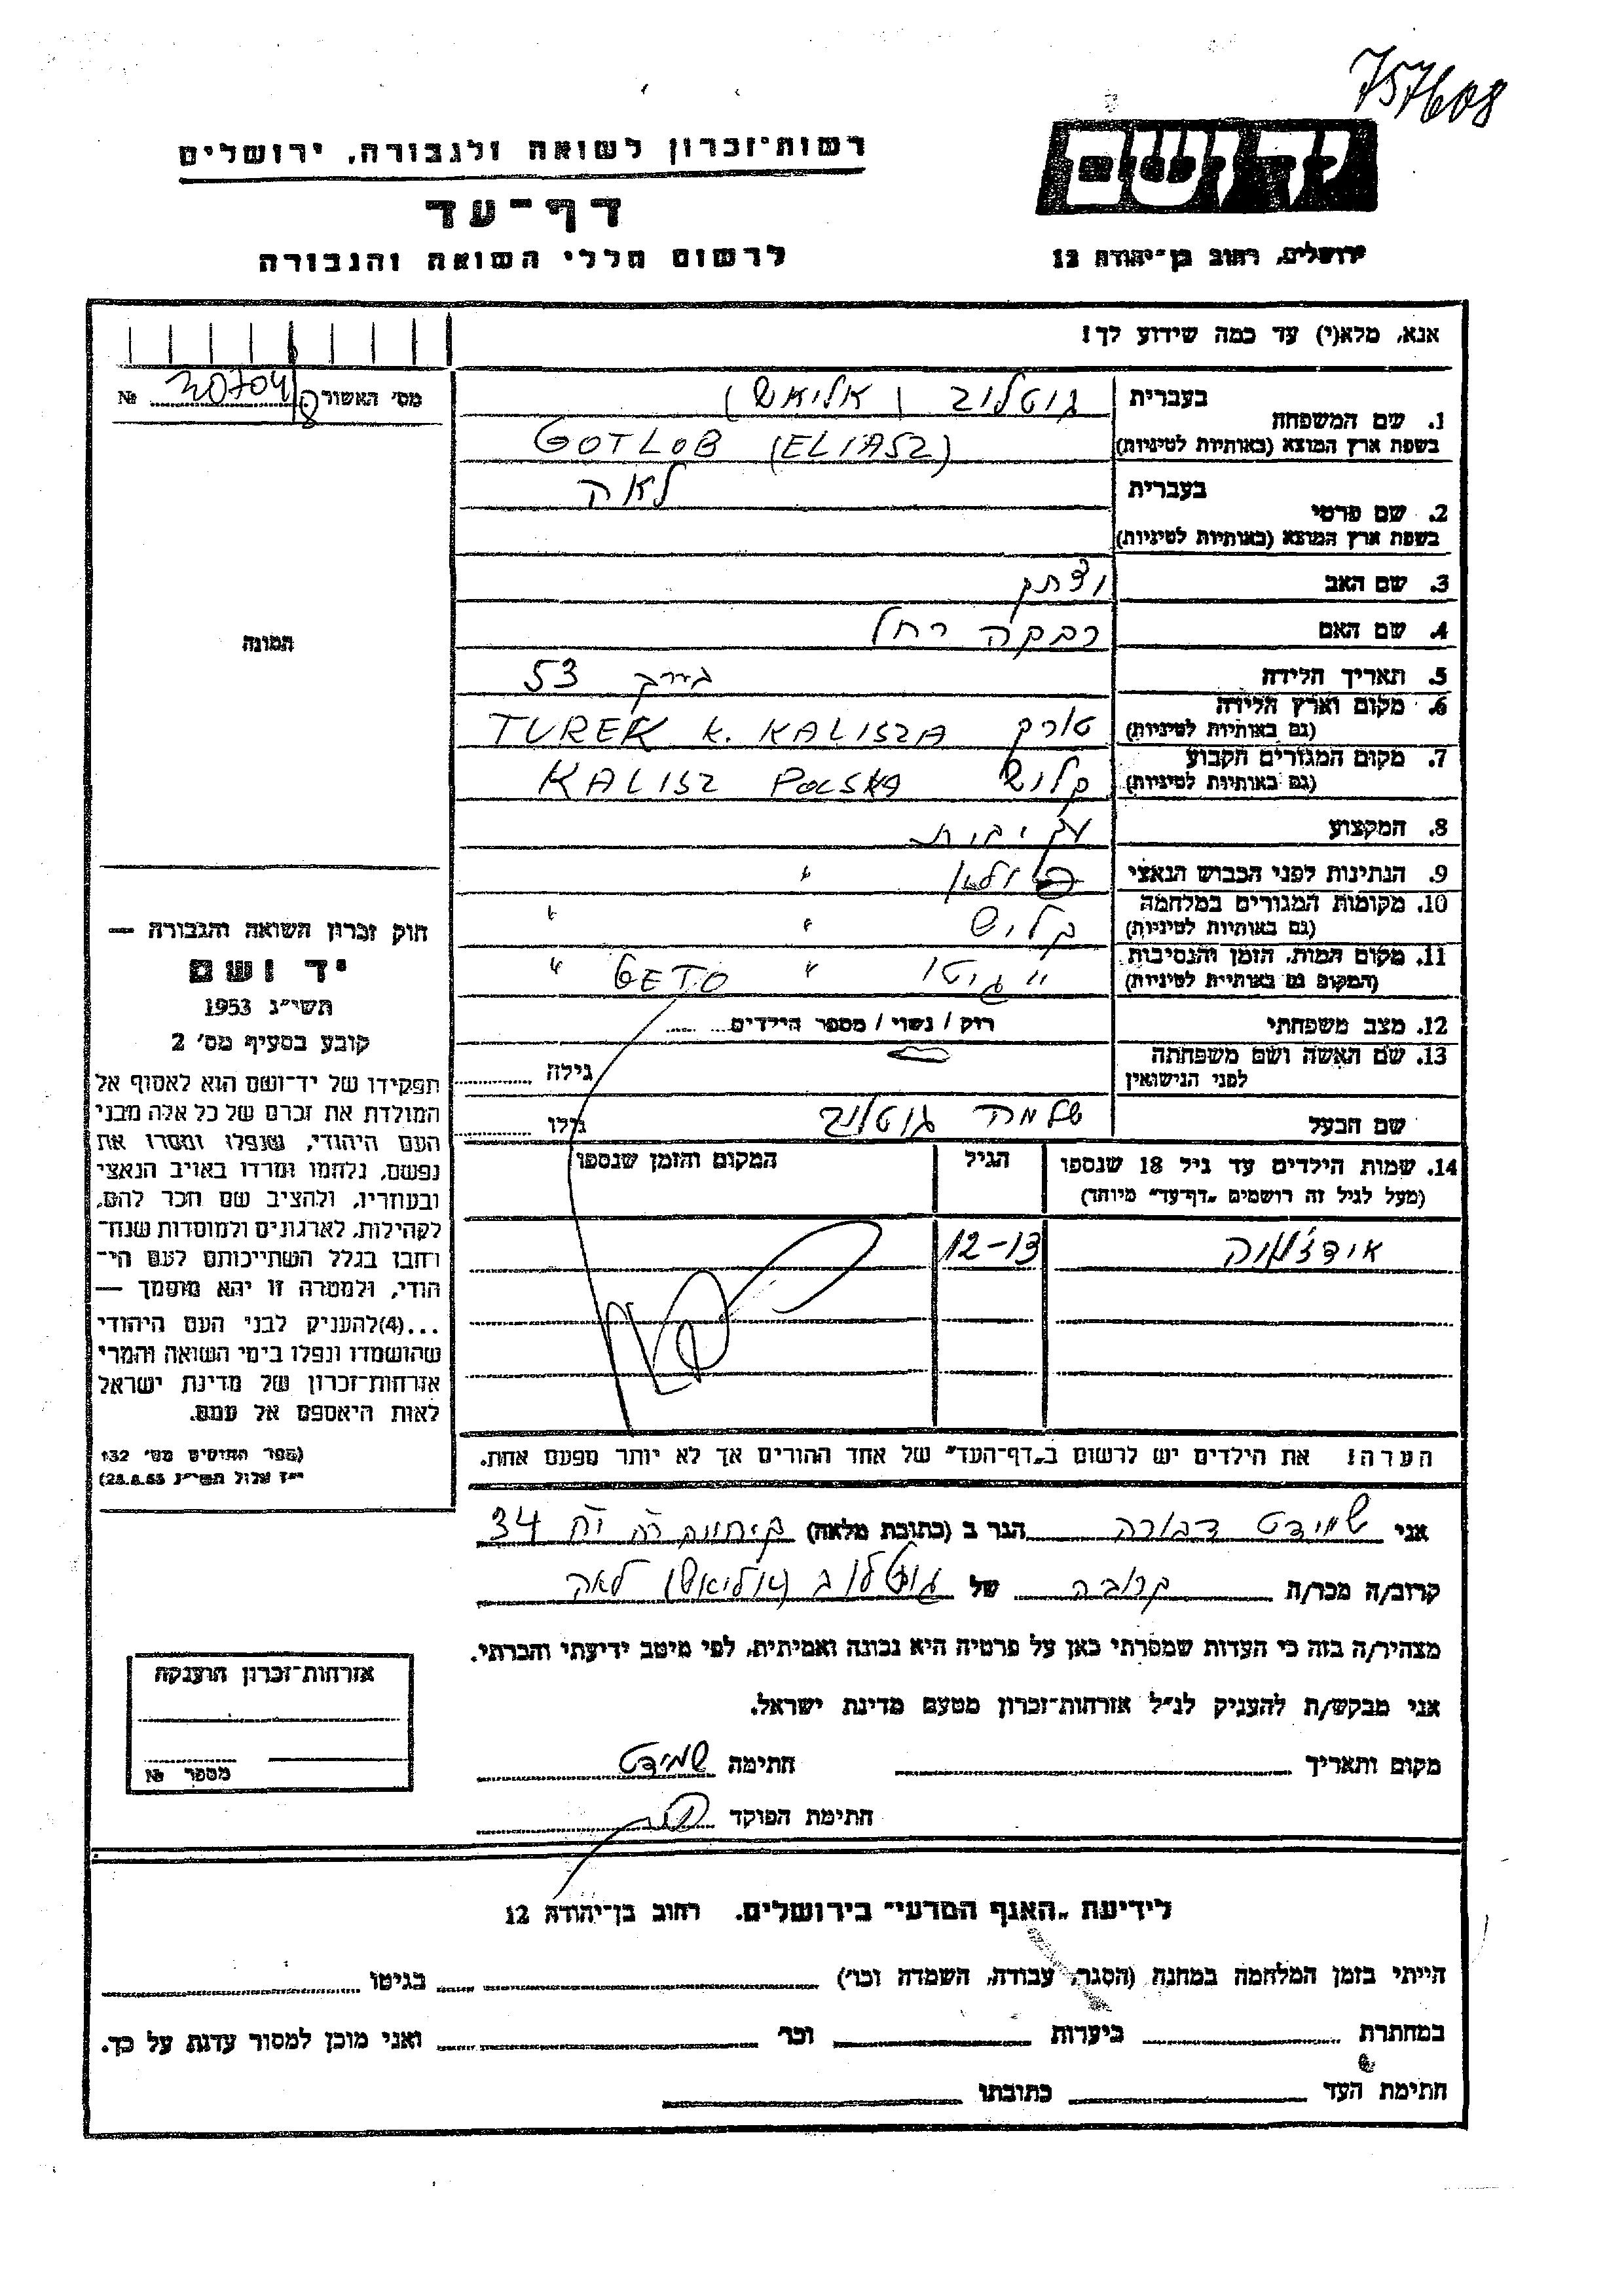 757608
יד ושם
ירושלים, רחוב בן־יהודה 12
רשות־זכרון לשואה ולגבורה, ירושלים
דף־עד
לרשום חללי השואה והגבורה
אנא, מלא(י) עד כמה שידוע לך!
מס׳ האשור №
בעברית גוטלוב (אליאש)
1. שם המשפחה
בשפת ארץ המוצא (באותיות לטיניות) GOTLOB (ELIASZ)
בעברית לאה
2. שם פרטי
בשפת ארץ המוצא (באותיות לטיניות)
3. שם האב יצחק
4. שם האם רבקה רחל
5. תאריך הלידה 53
6. מקום וארץ הלידה
(גם באותיות לטיניות) טורק TUREK K. KALISZA
7. מקום המגורים הקבוע
(גם באותיות לטיניות) קליש KALISZ POLSKA
8. המקצוע עק׳ בית
9. הנתינות לפני הכבוש הנאצי "
10. מקומות המגורים במלחמה
(גם באותיות לטיניות) קליש " "
11. מקום המות, הזמן והנסיבות
(המקום גם באותיות לטיניות) " גיטו " GETO "
12. מצב משפחתי רוק / נשוי / מספר הילדים
13. שם האשה ושם משפחתה
לפני הנישואין גילה
שם הבעל שלמה גוטלוב גילו
14. שמות הילדים עד גיל 18 שנספו
(מעל לגיל זה רושמים „דף־עד" מיוחד) הגיל המקום והזמן שנספו
12-13
הערה! את הילדים יש לרשום ב„דף־העד" של אחד ההורים אך לא יותר מפעם אחת.
אני שמידט דבורה הגר ב (כתובת מלאה) 34
קרוב/ה מכר/ה קרובה של גוטלוב (אליאש) לאה
מצהיר/ה בזה כי העדות שמסרתי כאן על פרטיה היא נכונה ואמיתית, לפי מיטב ידיעתי והכרתי.
אני מבקש/ת להעניק לנ״ל אזרחות־זכרון מטעם מדינת ישראל.
מקום ותאריך חתימה שמידט
חתימת הפוקד
תמונה
חוק זכרון השואה והגבורה —
יד ושם
תשי״ג 1953
קובע בסעיף מס׳ 2
תפקידו של יד־ושם הוא לאסוף אל
המולדת את זכרם של כל אלה מבני
העם היהודי, שנפלו ומסרו את
נפשם, נלחמו ומרדו באויב הנאצי
ובעוזריו, ולהציב שם וזכר להם,
לקהילות, לארגונים ולמוסדות שנח־
רחבו בגלל השתייכותם לעם הי־
הודי, ולמטרה זו יהא מוסמך —
...(4)להעניק לבני העם היהודי
שהושמדו ונפלו בימי השואה והמרי
אזרחות־זכרון של מדינת ישראל
לאות היאספם אל עמם.
(ספר החוקים מס׳ 132
י״ז אלול תשי״ג 28.8.53)
אזרחות־זכרון הוענקה
מספר №
לידיעת „האגף המדעי" בירושלים. רחוב בן־יהודה 12
הייתי בזמן המלחמה במחנה (הסגר, עבודה, השמדה וכו׳) בגיטו
במחתרת ביערות וכו׳ ואני מוכן למסור עדות על כך.
חתימת העד כתובתו